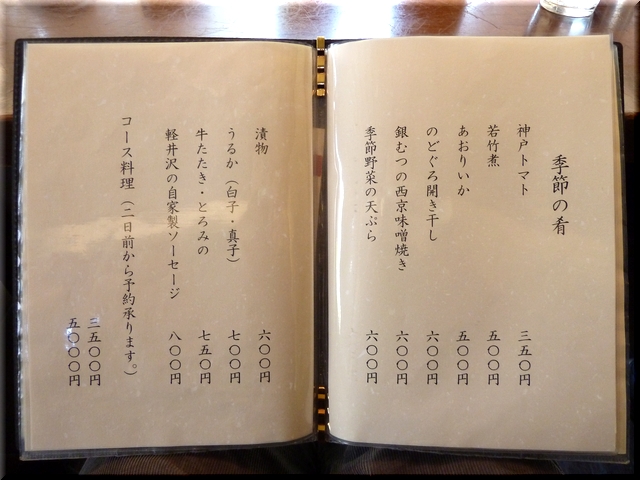 季節の肴
神戸トマト 三五〇円
若竹煮 五〇〇円
あおりいか 五〇〇円
のどぐろ開き干し 六〇〇円
銀むつの西京味噌焼き 六〇〇円
季節野菜の天ぷら 六〇〇円
漬物 六〇〇円
うるか（白子・真子） 七〇〇円
牛たたき・とろみの 七五〇円
軽井沢の自家製ソーセージ 八〇〇円
コース料理（二日前から予約承ります。）
三五〇〇円
五〇〇〇円